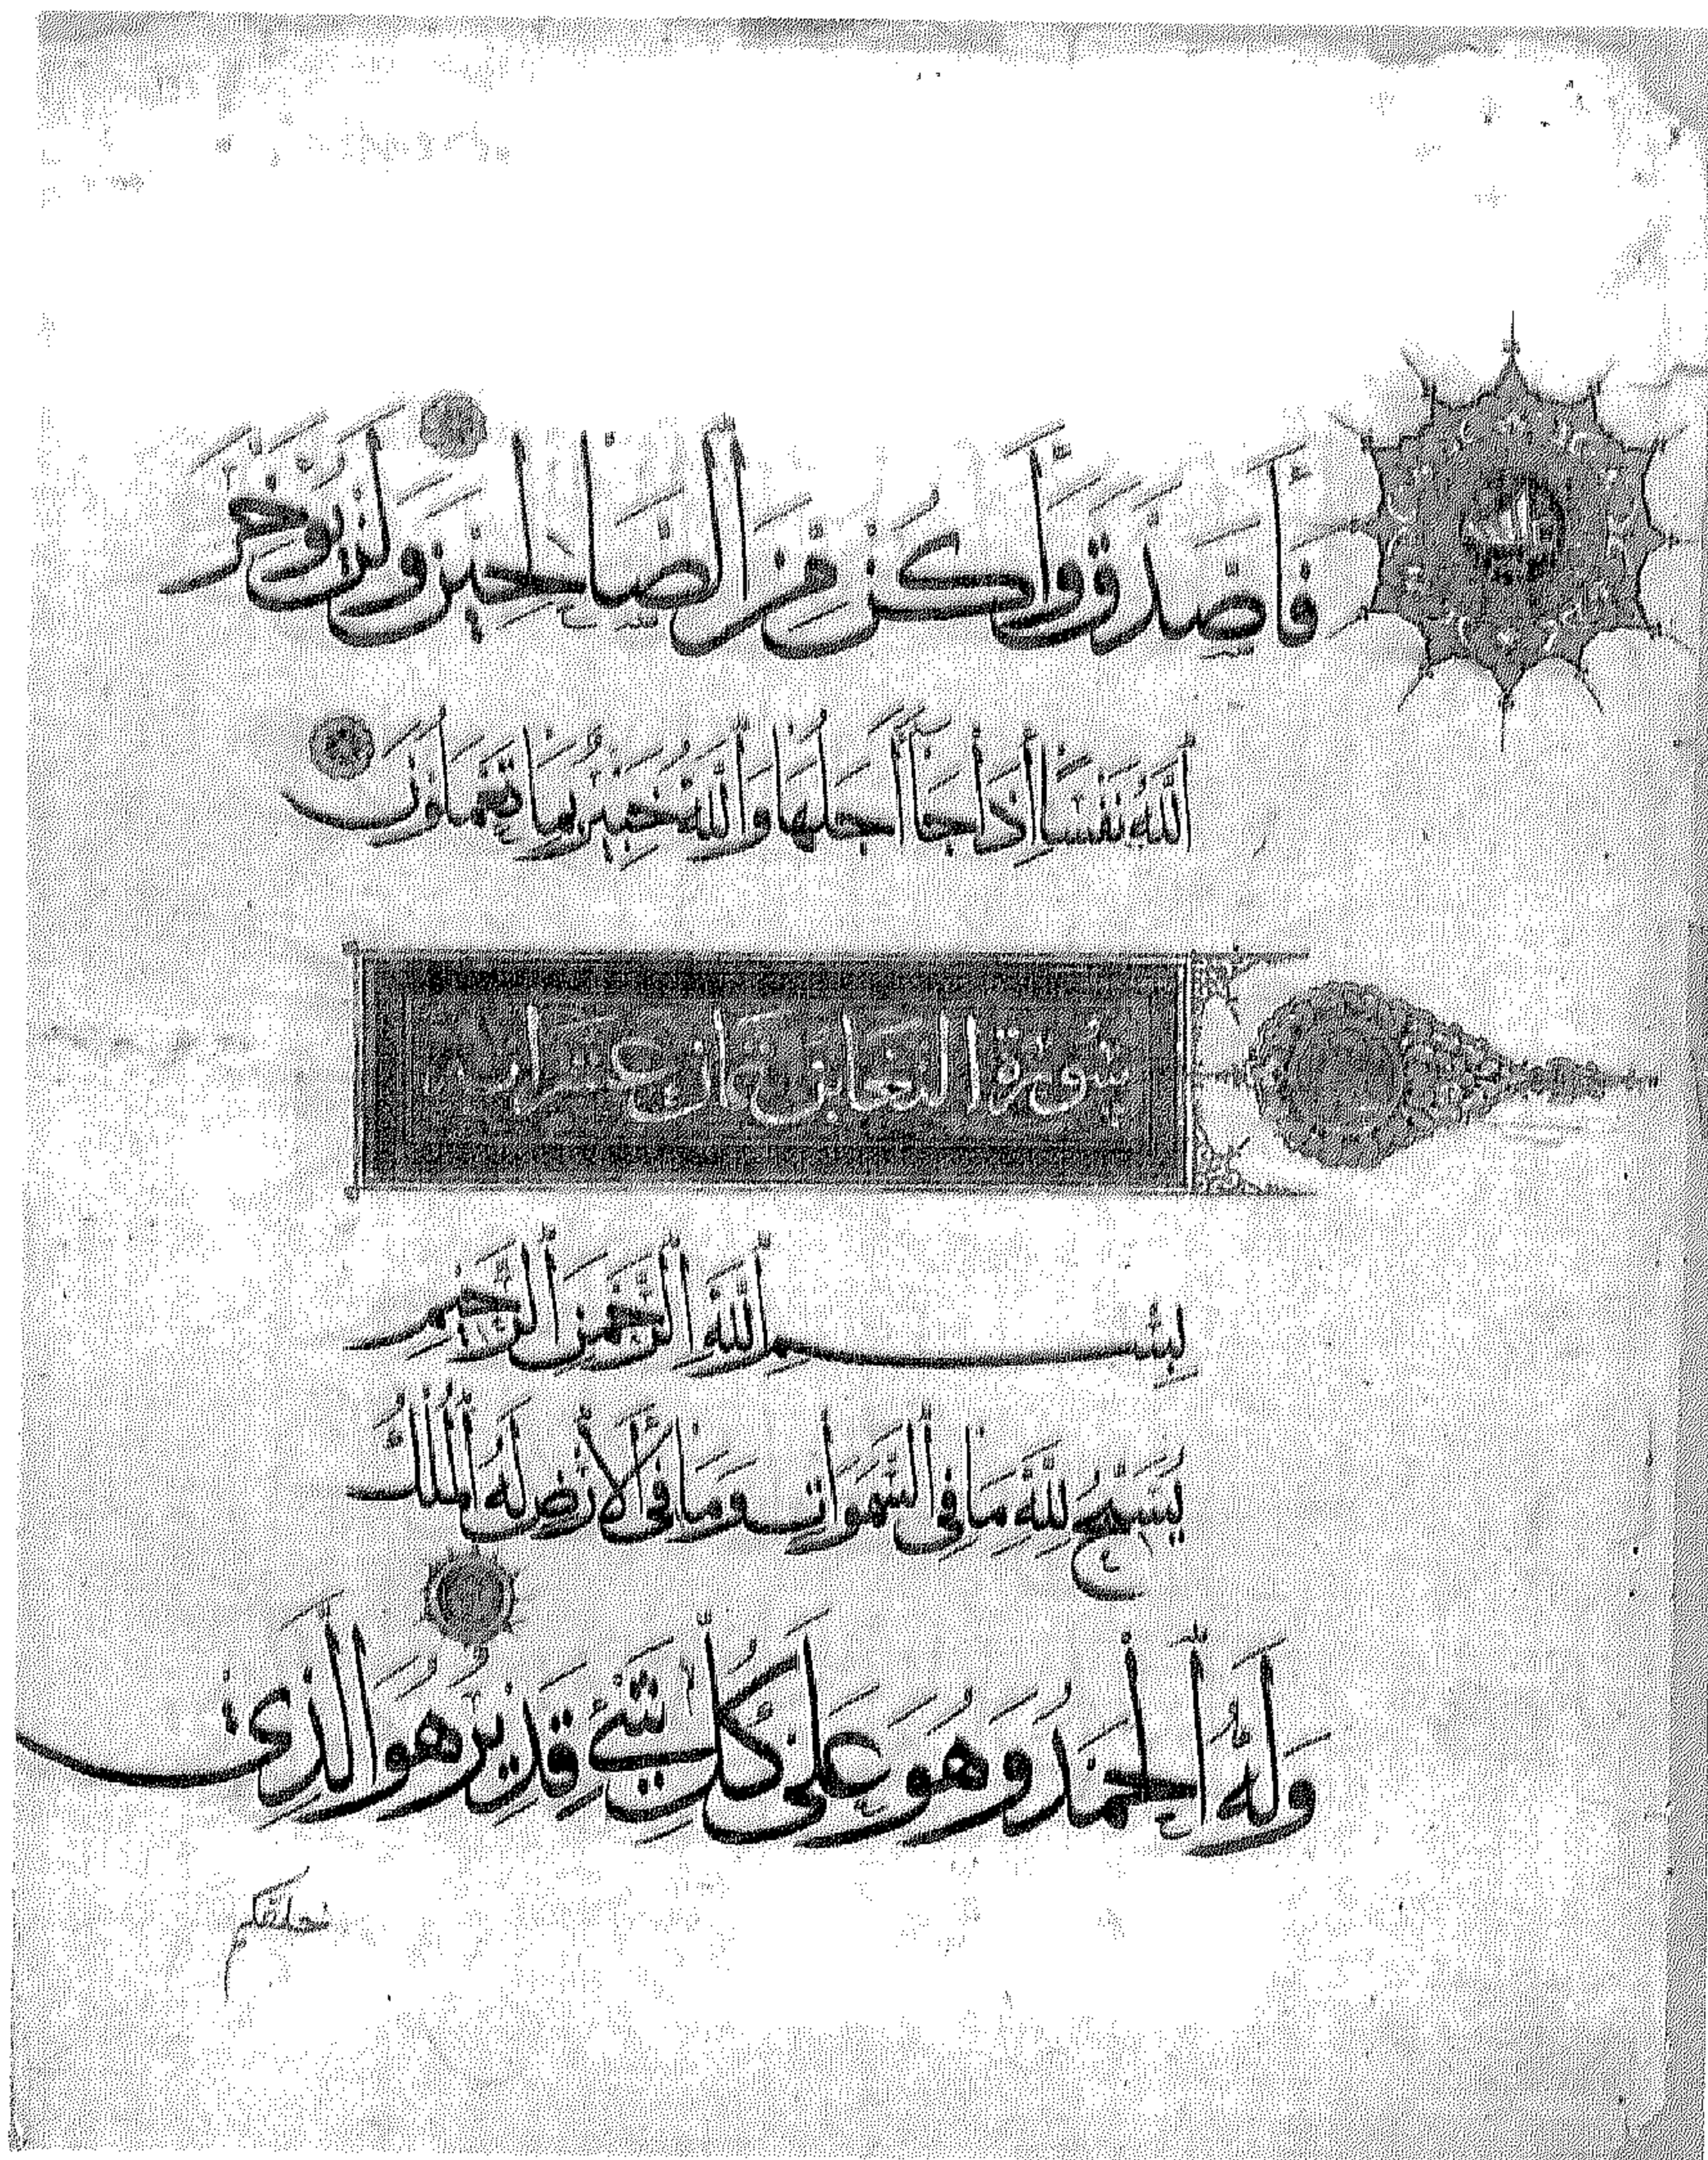 فَأَصَّدَّقَ وَأَكُنْ مِنَ الصَّالِحِينَ وَلَنْ يُؤَخِّرَ
اللَّهُ نَفْسًا إِذَا جَاءَ أَجَلُهَا وَاللَّهُ خَبِيرٌ بِمَا تَعْمَلُونَ
سُورَةُ التَّغَابُنِ ثَمَانِ عَشَرَ آية
بِسْمِ اللَّهِ الرَّحْمَنِ الرَّحِيمِ
يُسَبِّحُ لِلَّهِ مَا فِي السَّمَوَاتِ وَمَا فِي الْأَرْضِ لَهُ الْمُلْكُ
وَلَهُ الْحَمْدُ وَهُوَ عَلَى كُلِّ شَيْءٍ قَدِيرٌ هُوَ الَّذِي
خلقكم